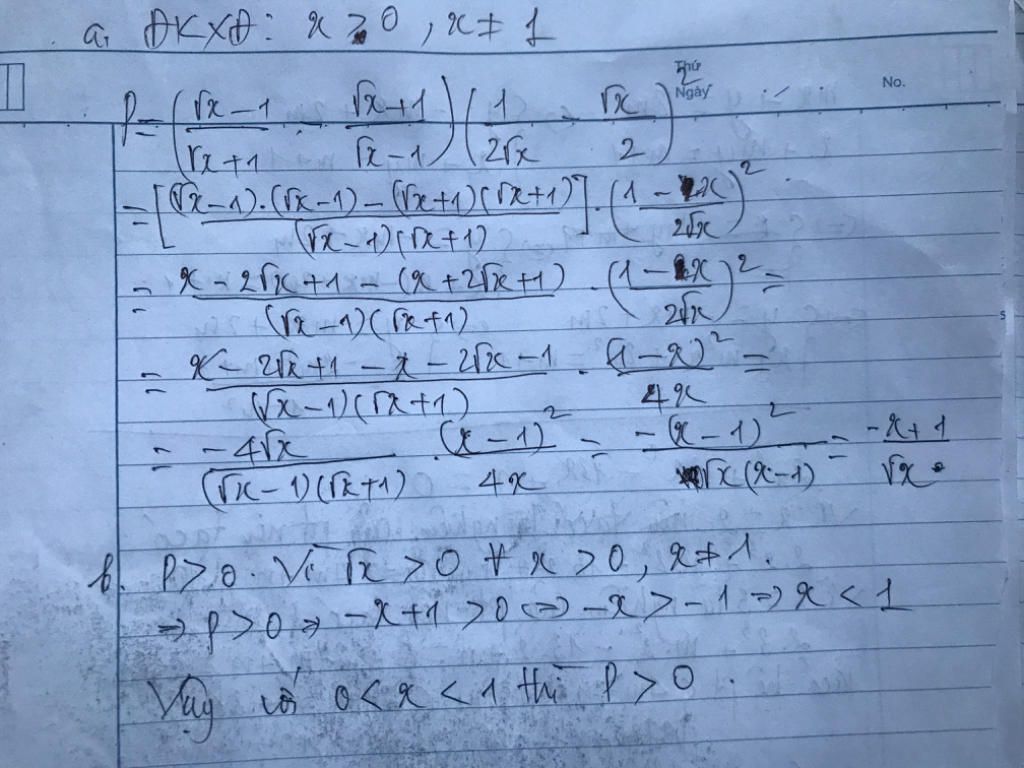 a, ĐKXĐ: x > 0, x ≠ 1
Thứ
Ngày
No.
P = ((√x - 1)/(√x + 1) - (√x + 1)/(√x - 1)) (1/(2√x) - √x/2)
= [((√x - 1).(√x - 1) - (√x + 1)(√x + 1))/((√x - 1)(√x + 1))] . ((1 - x)/(2√x))².
= (x - 2√x + 1 - (x + 2√x + 1))/((√x - 1)(√x + 1)) . ((1 - x)/(2√x))² =
= (x - 2√x + 1 - x - 2√x - 1)/((√x - 1)(√x + 1)) . (1 - x)²/(4x) =
= (-4√x)/((√x - 1)(√x + 1)) . (x - 1)²/(4x) = (-(x - 1)²)/(√x(x - 1)) = (-x + 1)/√x.
b. P > 0. Vì √x > 0 ∀ x > 0, x ≠ 1.
⇒ P > 0 ⇒ -x + 1 > 0 ⇔ -x > -1 ⇒ x < 1
Vậy với 0 < x < 1 thì P > 0.